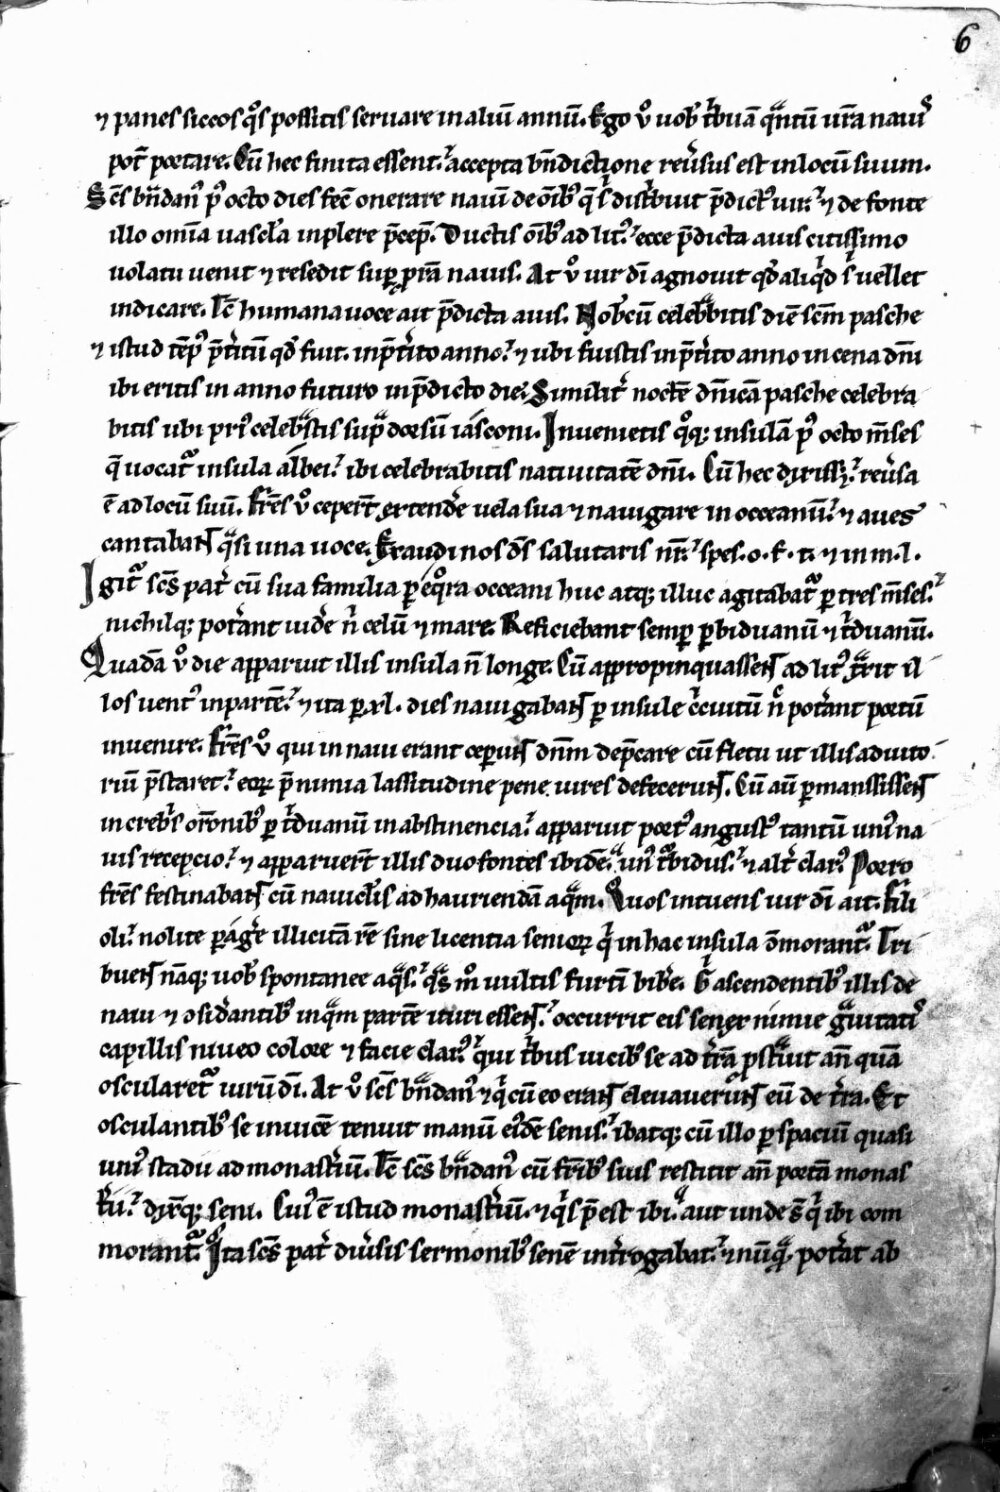 6
⁊ panes siccos q̊s possitis seruare in aliū annū. Ego ů uob᷒ tͥbuā qᵃntū urā nauis
pot̄ portare. Cū hec finita essent. accepta bn̄dictione reu̓sus est in locū suum.
Sc̄s brᵃndan᷒ p᷒ octo dies fec̄ onerare nauū de oīb᷒ q̄ s᷒ distͥbuit p̄dict᷒ uir. ⁊ de fonte
illo omīa uascl̓a inplere p̄cep̄. Ductis oīb᷒ ad lit᷒. ecce p̄dicta auis citissimo
uolatu uenit ⁊ resedit sup̱ p̱rā nauis. At ů uir dī agnouit qd̓ aliqͥd sͥ uellet
indicare. Tc̄ humana uoce ait p̄dicta auis. Nob̓cū celebᵃbitis diē sc̄m pasche
⁊ istud tēp᷒ p̄t̓itū qd̓ fuit. in p̄t̓ito anno. ⁊ ubi fuistis in p̄t̓ito anno in cena dn̄i
ibi eritis in anno futuro in p̄dicto die. Similit̓ noctē dn̄icā pasche celebra
bitis ubi pri᷒ celebᵃstis supᵃ dorsū iasconi. Inuenietis qͦq; insulā p᷒ octo m̄ses
q̄ uocat᷑ insula albei. ibi celebrabitis natiuitatē dn̄i. Cū hec dixiss;. reu̓sa
ē ad locū suū. Fr̄es ů ceper̄t extend̓e uela sua ⁊ nauigare in occeanū. ⁊ aues
cantabant qᵃsi una uoce. Exaudi nos d̄s salutaris nr̄. spes. o. f. t. ⁊ in m. l.
Igit᷑ sc̄s pat̓ cū sua familia p̱ eqͦra occeani huc atq; illuc agitabat᷑ p̱ tres m̄ses.
nichilq; pot̓ant uid̓e nͥ celū ⁊ mare. Reficiebant semp̱ p̱ biduanū ⁊ tͥduanū.
Quadā ů die apparuit illis insula n̄ longe. Cū appropinquassent ad lit᷒ tᵃxit il
los uent᷒ in partē. ⁊ ita p̱ xl. dies nauigabant p̱ insule cͥcuitū nͨ pot̓ant portū
inuenire. Fr̄es ů qui in naui erant cep̱unt dn̄m dep̄care cū fletu ut illis aduito
riū p̄staret. eoꝝ p̄ nimia lassitudine pene uires defecerunt. Cū aū p̱mansissent
in crebͥs orōnib᷒ p̱ tͥduanū in abstinencia. apparuit port᷒ angust᷒ tantū uni᷒ na
uis recepcio. ⁊ apparuer̄t illis duo fontes ibidē. un᷒ t᷑bidus. ⁊ alt̓ clar᷒. Porro
fr̄es festinabant cū nauicl̓is ad hauriendā aqᵃm. Quos intuens uir dī ait. Fili
oli. nolite p̱ag̓e illicitā rē sine licentia senioꝝ qͥ in hac insula ꝺmorant᷑. Tri
buent nāq; uob᷒ spontanee aqᵃs. qᵃs mͦ uultis furtī bib̓e. Gͥ ascendentib᷒ illis de
naui ⁊ ꝯsid̓antib᷒ in qᵃm partē ituri essent. occurrit eis senex nimie gᵃuitatͥs
capillis niueo colore ⁊ facie clar᷒. qui tͥbus uicib᷒ se ad t̓rā pstᵃuit an̄ quā
oscularet᷑ uirū dī. At ů sc̄s brᵃndan᷒ ⁊ qͥ cū eo erant eleuauerunt eū de t̓ra. Et
osculantib᷒ se inuicē tenuit manū ei᷒dē senis. ibatq; cū illo p̱ spaciū quasi
uni᷒ stadii ad monast̓iū. Tc̄ sc̄s brᵃndan᷒ cū fr̄ib᷒ suis restitit an̄ portā monas
t̓ii. dix̄q; seni. Cui᷒ ē istud monast̓iū. ⁊ qͥs p̄est ibi. aut unde sᷓ qͥ ibi com
morant᷑. Ita sc̄s pat̓ diu̓sis sermonib᷒ senē int̓rogabat. ⁊ nūqᵃ pot̓at ab